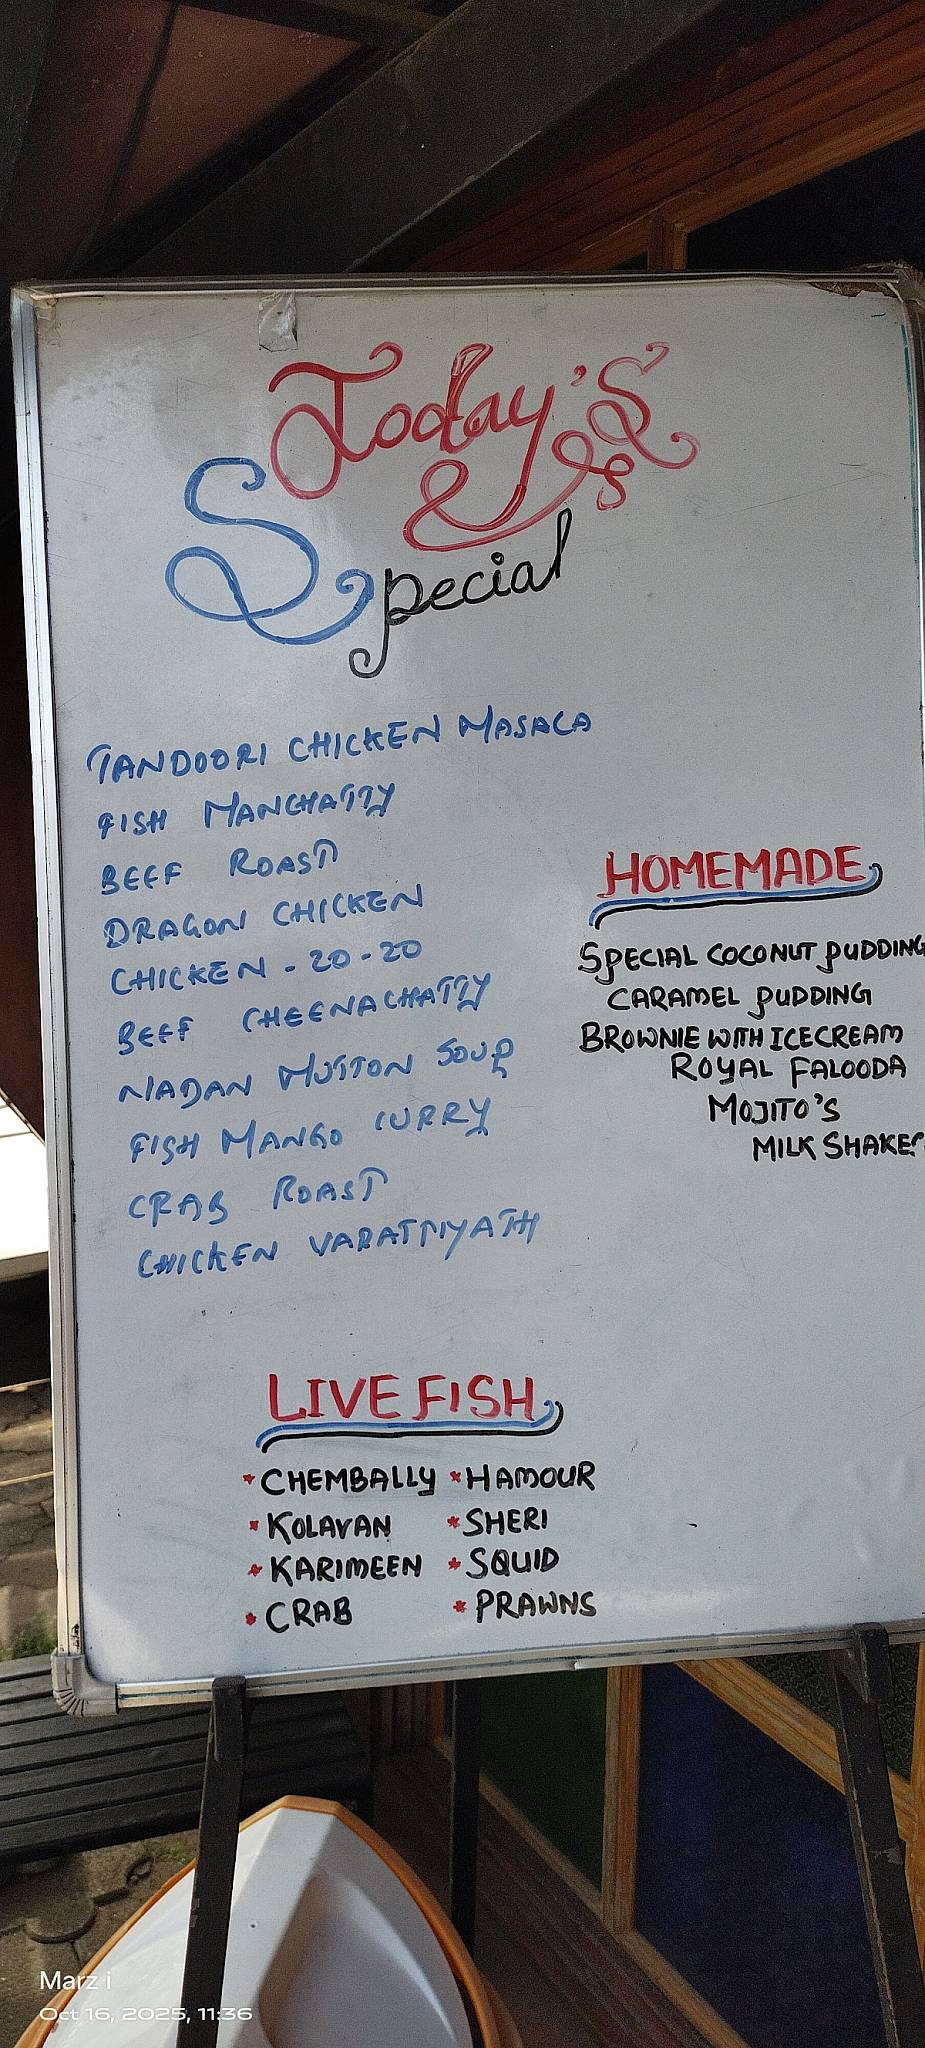 Today's
Special
TANDOORI CHICKEN MASALA
FISH MANCHATTY
BEEF ROAST
DRAGON CHICKEN
CHICKEN - 20 - 20
BEEF CHEENACHATTY
NADAN MUTTON SOUP
FISH MANGO CURRY
CRAB ROAST
CHICKEN VARATTIYATH
HOMEMADE
SPECIAL COCONUT PUDDING
CARAMEL PUDDING
BROWNIE WITH ICECREAM
ROYAL FALOODA
MOJITO'S
MILK SHAKES
LIVE FISH
* CHEMBALLY * HAMOUR
* KOLAVAN * SHERI
* KARIMEEN * SQUID
* CRAB * PRAWNS
Marz i
Oct 16, 2025, 11:36